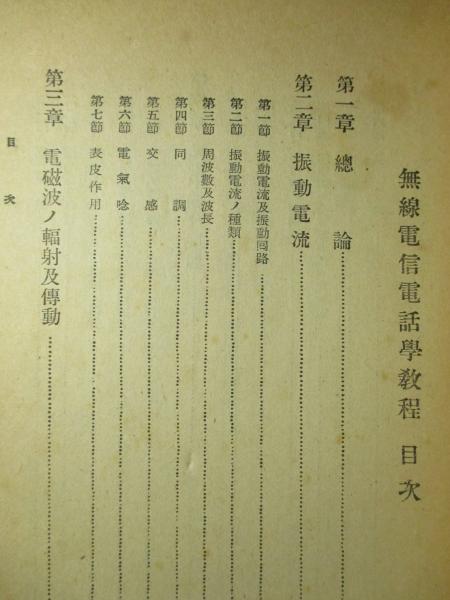 無線電信電話學敎程 目次
第一章 總論
第二章 振動電流
第一節 振動電流及振動回路
第二節 振動電流ノ種類
第三節 周波數及波長
第四節 同調
第五節 交感
第六節 電氣唸
第七節 表皮作用
第三章 電磁波ノ輻射及傳動
目次